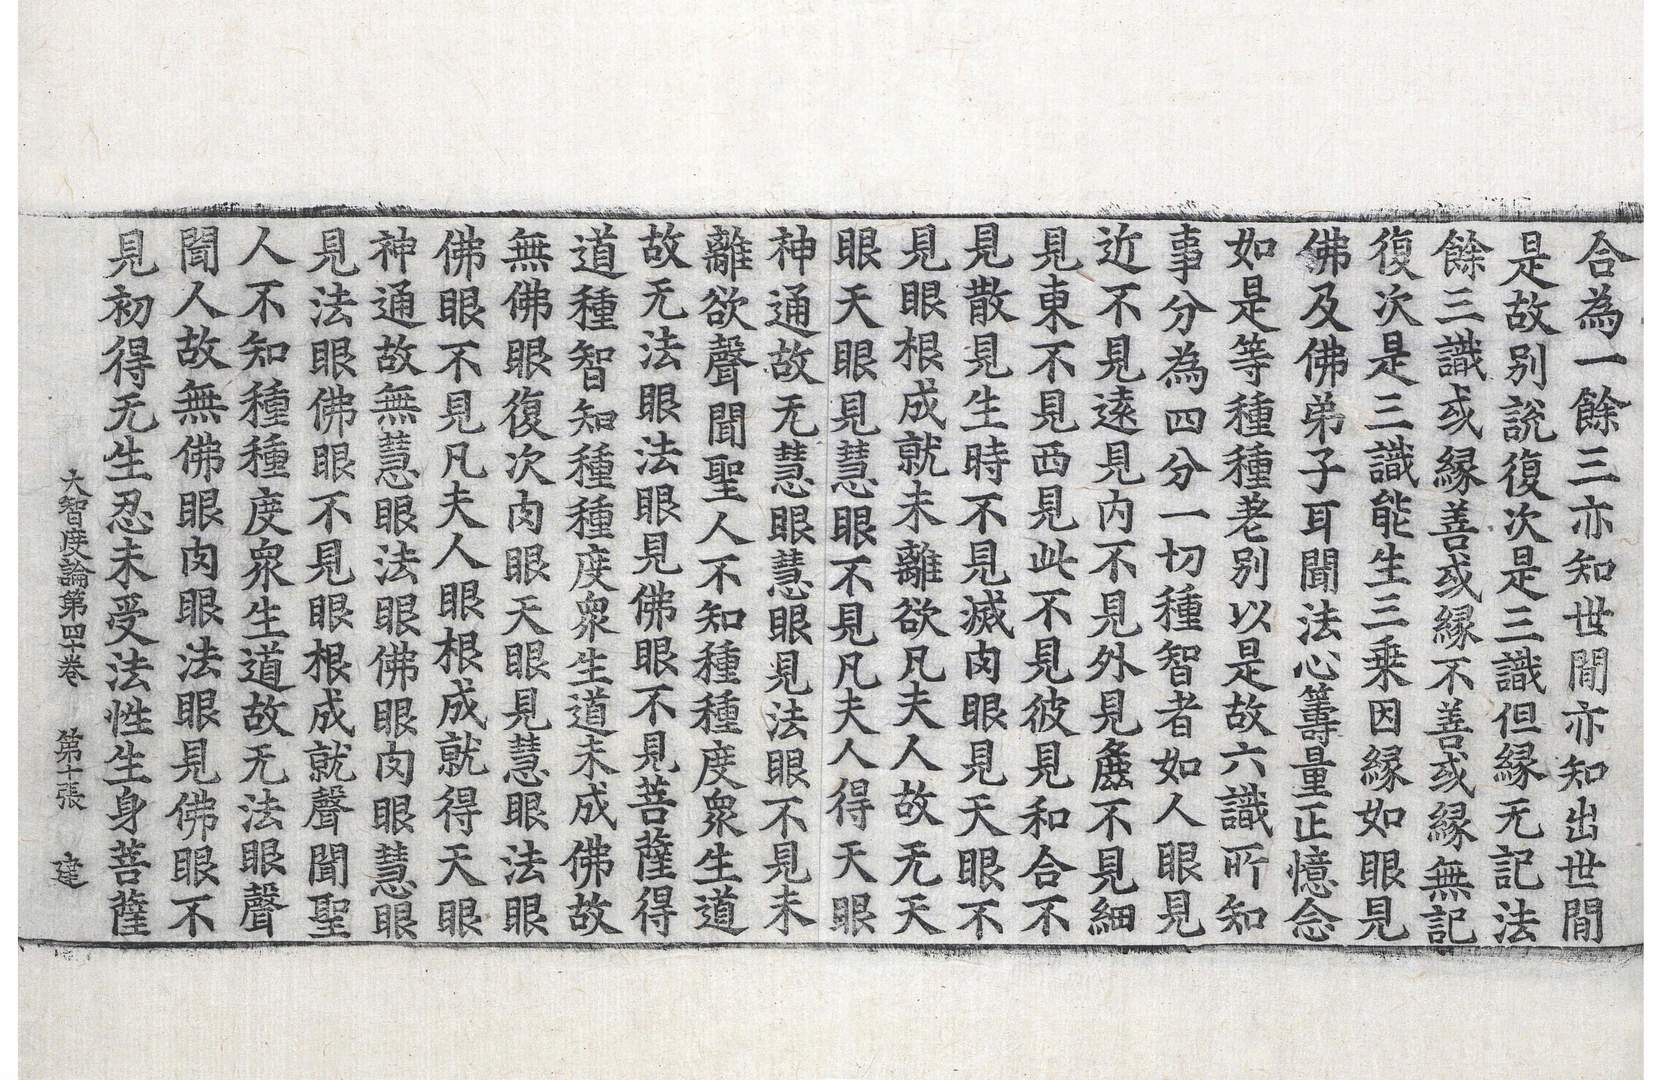 合為一餘三亦知世間亦知出世間
是故別說復次是三識但緣无記法
餘三識或緣善或緣不善或緣無記
復次是三識能生三乗因緣如眼見
佛及佛弟子耳聞法心籌量正憶念
如是等種種差別以是故六識所知
事分為四分一切種智者如人眼見
近不見遠見內不見外見麁不見細
見東不見西見此不見彼見和合不
見散見生時不見滅肉眼見天眼不
見眼根成就未離欲凡夫人故无天
眼天眼見慧眼不見凡夫人得天眼
神通故无慧眼慧眼見法眼不見未
離欲聲聞聖人不知種種度衆生道
故无法眼法眼見佛眼不見菩薩得
道種智知種種度衆生道未成佛故
無佛眼復次肉眼天眼見慧眼法眼
佛眼不見凡夫人眼根成就得天眼
神通故無慧眼法眼佛眼肉眼慧眼
見法眼佛眼不見眼根成就聲聞聖
人不知種種度衆生道故无法眼聲
聞人故無佛眼肉眼法眼見佛眼不
見初得无生忍未受法性生身菩薩
大智度論第四十卷 第十張 達